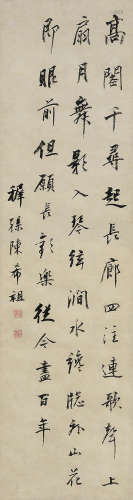 高閣千尋起長廊四注連歌聲上
扇月舞影入琴弦澗水纔牎外山花
即眼前但願長歡樂從今盡百年
稺孫陳希祖